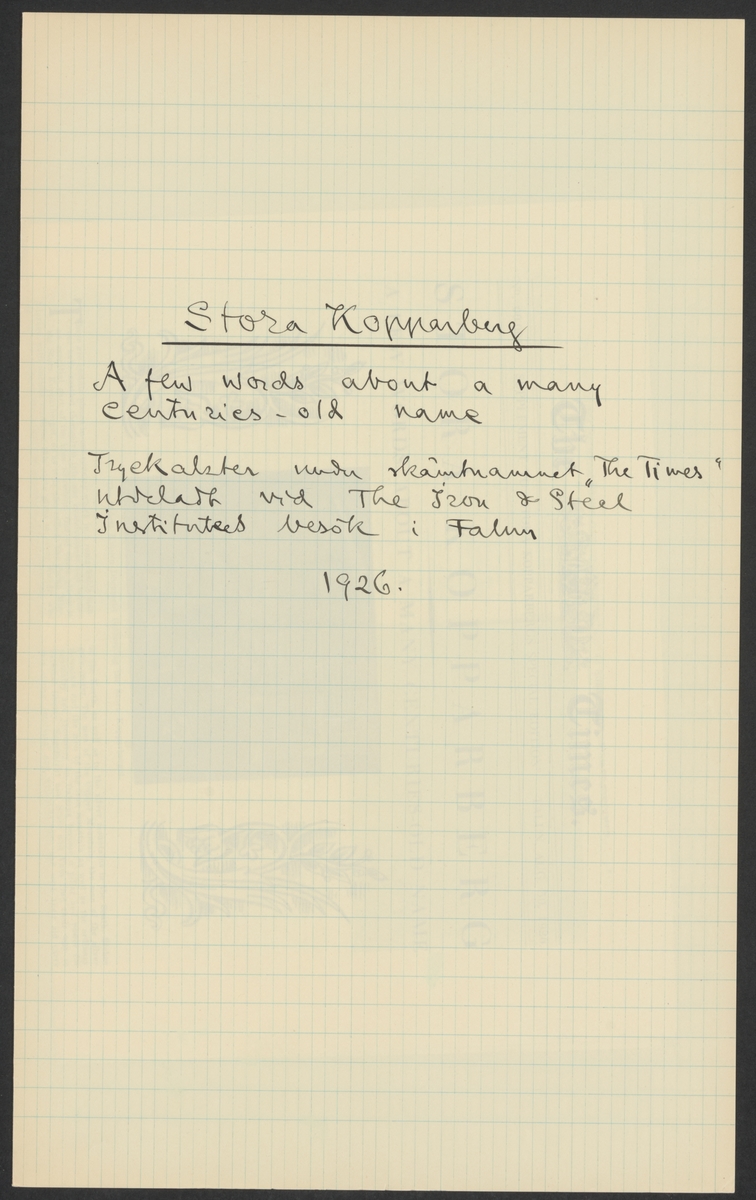 Stora Kopparberg
A few words about a many
centuries-old name
Tryckalster under skämtnamnet „The Times"
utdeladt vid The Iron & Steel
Institutes besök i Falun
1926.